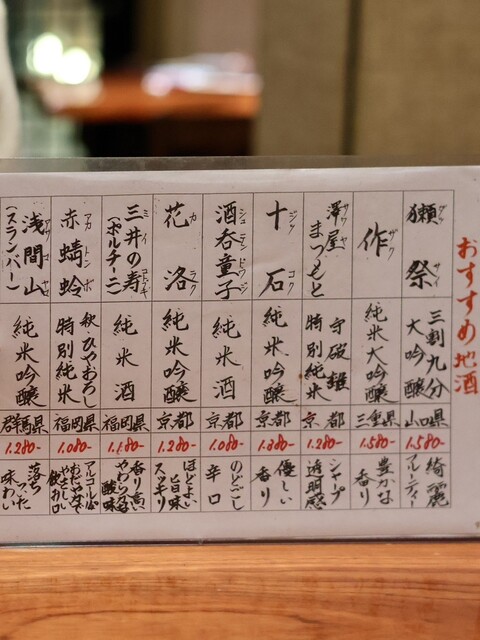 おすすめ地酒
獺祭
ダッサイ
三割九分
大吟醸
山口県
1.580-
綺麗
フルーティー
作
ザク
純米大吟醸
三重県
1.580-
豊かな
香り
澤屋
サワヤ
まつもと
守破離
特別純米
京都
1.280-
シャープ
透明感
十石
ジッコク
純米吟醸
京都
優しい
香り
酒呑童子
シュテンドウジ
純米酒
京都
1.080-
のどごし
辛口
花洛
カラク
純米吟醸
京都
1.280-
ほどよい
旨味
スッキリ
三井の寿
ミイコトブキ
(ポルチーニ)
純米酒
福岡県
1.180-
香り高い
やわらかな
酸味
赤蜻蛉
アカトンボ
秋ひやおろし
特別純米
福岡県
1.080-
おだやかで
やさしい
飲み口
浅間山
アサマヤマ
(スランバー)
純米吟醸
群馬県
1.280-
落ち
ついた
味わい